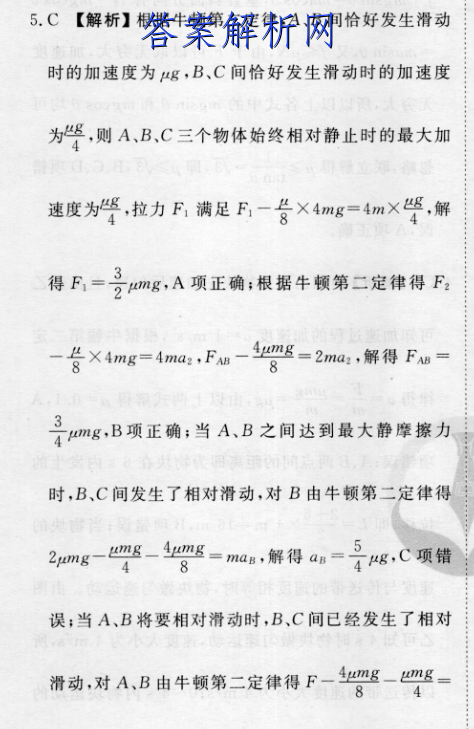 答案解析网
5.C 【解析】根据牛顿第二定律,A、B间恰好发生滑动
时的加速度为μg,B、C间恰好发生滑动时的加速度
为μg/4,则 A、B、C三个物体始终相对静止时的最大加
速度为μg/4,拉力 F₁ 满足 F₁-μ/8×4mg=4m×μg/4,解
得 F₁=3/2μmg,A 项正确;根据牛顿第二定律得 F₂
-μ/8×4mg=4ma₂,F_AB-4μmg/8=2ma₂,解得 F_AB=
3/4μmg,B项正确;当 A、B 之间达到最大静摩擦力
时,B、C间发生了相对滑动,对 B由牛顿第二定律得
2μmg-μmg/4-4μmg/8=ma_B,解得 a_B=5/4μg,C 项错
误;当 A、B将要相对滑动时,B、C间已经发生了相对
滑动,对 A、B由牛顿第二定律得 F-4μmg/8-μmg/4=